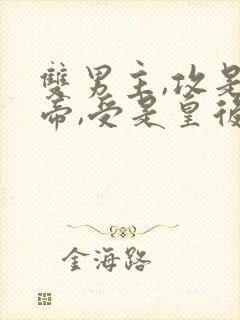 雙男主,攻是
帝,受是皇後
金海路